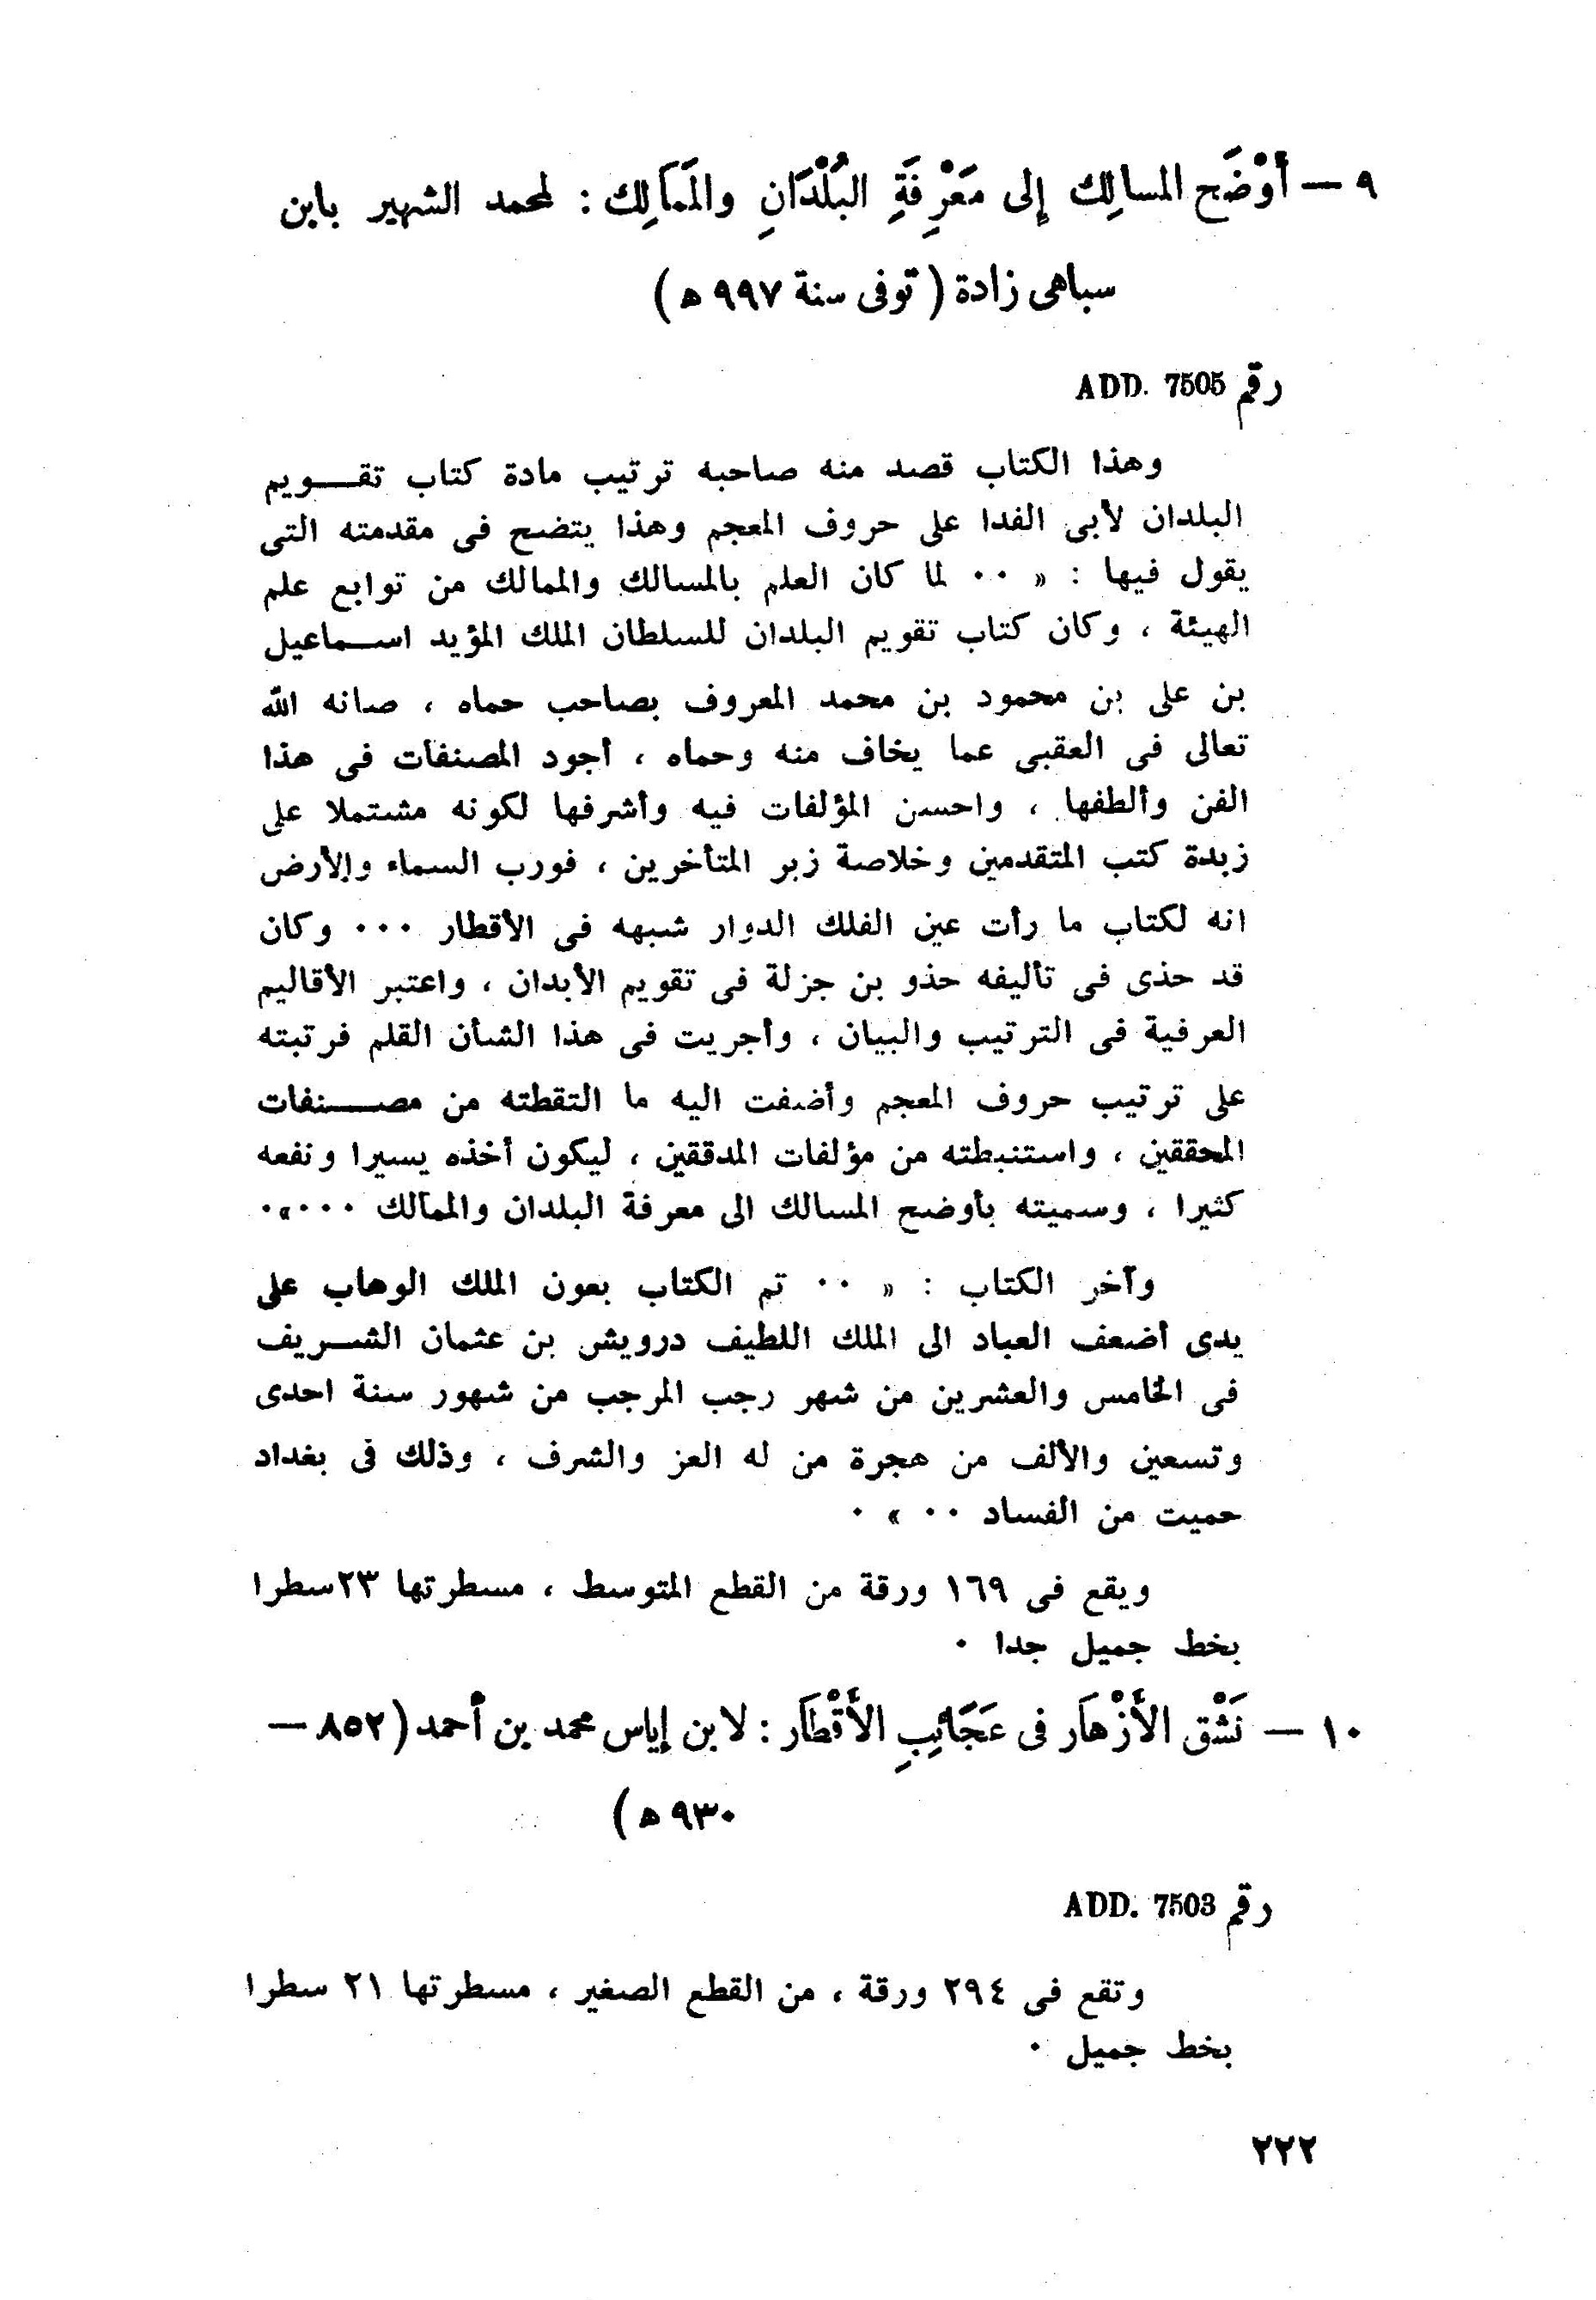 ٩ — أَوْضَح المسالِك إلى مَعْرِفَةِ البُلْدَانِ والمَمَالِك : لمحمد الشهير بابن
سباهى زادة ( توفى سنة ٩٩٧ ه )
رقم ADD. 7505
وهذا الكتاب قصد منه صاحبه ترتيب مادة كتاب تقـــويم
البلدان لأبى الفدا على حروف المعجم وهذا يتضح فى مقدمته التى
يقول فيها : « ٠٠ لما كان العلم بالمسالك والممالك من توابع علم
الهيئة ، وكان كتاب تقويم البلدان للسلطان الملك المؤيد اســماعيل
بن على بن محمود بن محمد المعروف بصاحب حماه ، صانه الله
تعالى فى العقبى عما يخاف منه وحماه ، أجود المصنفات فى هذا
الفن وألطفها ، واحسن المؤلفات فيه وأشرفها لكونه مشتملا على
زبدة كتب المتقدمين وخلاصة زبر المتأخرين ، فورب السماء والأرض
انه لكتاب ما رأت عين الفلك الدوار شبهه فى الأقطار ٠٠٠ وكان
قد حذى فى تأليفه حذو بن جزلة فى تقويم الأبدان ، واعتبر الأقاليم
العرفية فى الترتيب والبيان ، وأجريت فى هذا الشأن القلم فرتبته
على ترتيب حروف المعجم وأضفت اليه ما التقطته من مصـــنفات
المحققين ، واستنبطته من مؤلفات المدققين ، ليكون أخذه يسيرا ونفعه
كثيرا ، وسميته بأوضح المسالك الى معرفة البلدان والممالك ٠٠٠»٠
وآخر الكتاب : « ٠٠ تم الكتاب بعون الملك الوهاب على
يدى أضعف العباد الى الملك اللطيف درويش بن عثمان الشــريف
فى الخامس والعشرين من شهر رجب المرجب من شهور سنة احدى
وتسعين والألف من هجرة من له العز والشرف ، وذلك فى بغداد
حميت من الفساد ٠٠ » ٠
ويقع فى ١٦٩ ورقة من القطع المتوسط ، مسطرتها ٢٣سطرا
بخط جميل جدا ٠
١٠ — نَشْق الأَزْهَار فى عَجَائِبِ الأَقْطَار : لابن إياس محمد بن أحمد ( ٨٥٢ —
٩٣٠ ه )
رقم ADD. 7503
وتقع فى ٢٩٤ ورقة ، من القطع الصغير ، مسطرتها ٢١ سطرا
بخط جميل ٠
٢٢٢